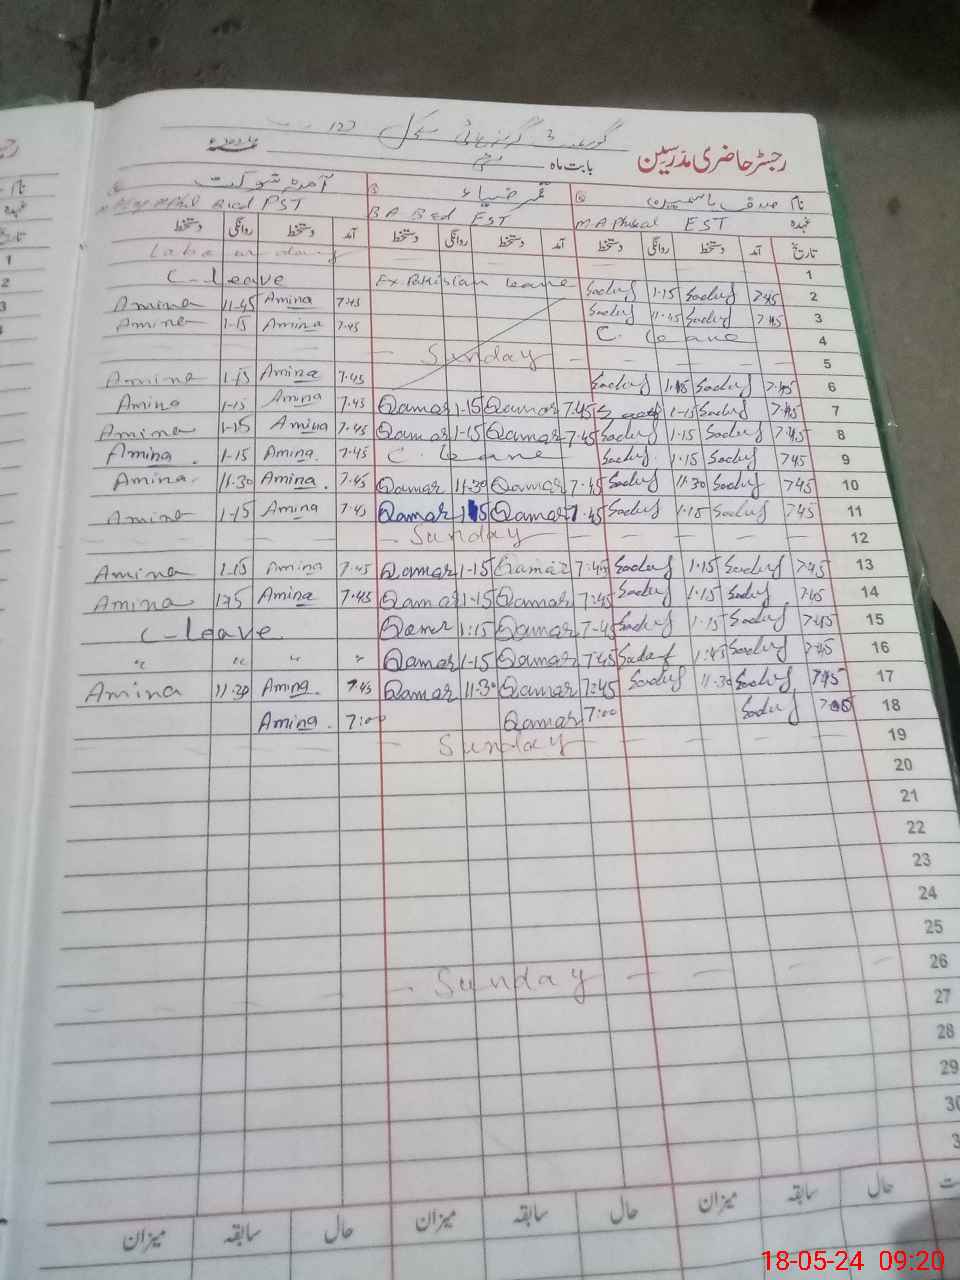 رجسٹر حاضری مدرسین
بابت ماہ
نام
آمنہ شوکت
قمر ضیاء
عہدہ M A Phical EST B A B ed EST Bed PST
تاریخ آمد دستخط روانگی دستخط آمد دستخط روانگی دستخط آمد دستخط روانگی دستخط
Labour day 1
C-leave Ex. Pakistan leave Saduf 1-15 Saduf 7:45 2
Amina 11-45 Amina 7:45 Saduf 11:45 Saduf 7:45 3
Amina 1-15 Amina 7:45 C. leave 4
— Sunday — — — — 5
Amina 1-15 Amina 7:45 Saduf 1:15 Saduf 7:45 6
Amina 1-15 Amina 7:45 Qamar 1-15 Qamar 7:45 1-15 Saduf 7:45 7
Amina 1-15 Amina 7:45 Qamar 1-15 Qamar 7:45 Saduf 1:15 Saduf 7:45 8
Amina. 1-15 Amina. 7:45 C. leave Saduf. 1:15 Saduf 7:45 9
Amina. 11-30 Amina. 7:45 Qamar 11-30 Qamar 7:45 Saduf 11:30 Saduf 7:45 10
Amina 1-15 Amina 7:45 Qamar 1-15 Qamar 7:45 Saduf 1:15 Saduf 7:45 11
— Sunday — — — — 12
Amina 1-15 Amina 7:45 Qamar 1-15 Qamar 7:45 Saduf 1:15 Saduf 7:45 13
Amina 1-15 Amina 7:45 Qamar 1-15 Qamar 7:45 Saduf 1:15 Saduf 7:45 14
C-leave Qamar 1:15 Qamar 7-45 Saduf 1-15 Saduf 7:45 15
" " " " Qamar 1-15 Qamar 7:45 Saduf 1:45 Saduf 7:45 16
Amina 11-30 Amina. 7:45 Qamar 11-30 Qamar 7:45 Saduf 11-30 Saduf 7:45 17
Amina. 7:00 Qamar 7:00 Saduf 18
— Sunday — — — — 19
20
21
22
23
24
25
— Sunday — — — — 26
27
28
29
30
حال سابقہ میزان حال سابقہ میزان حال سابقہ میزان
18-05-24 09:20